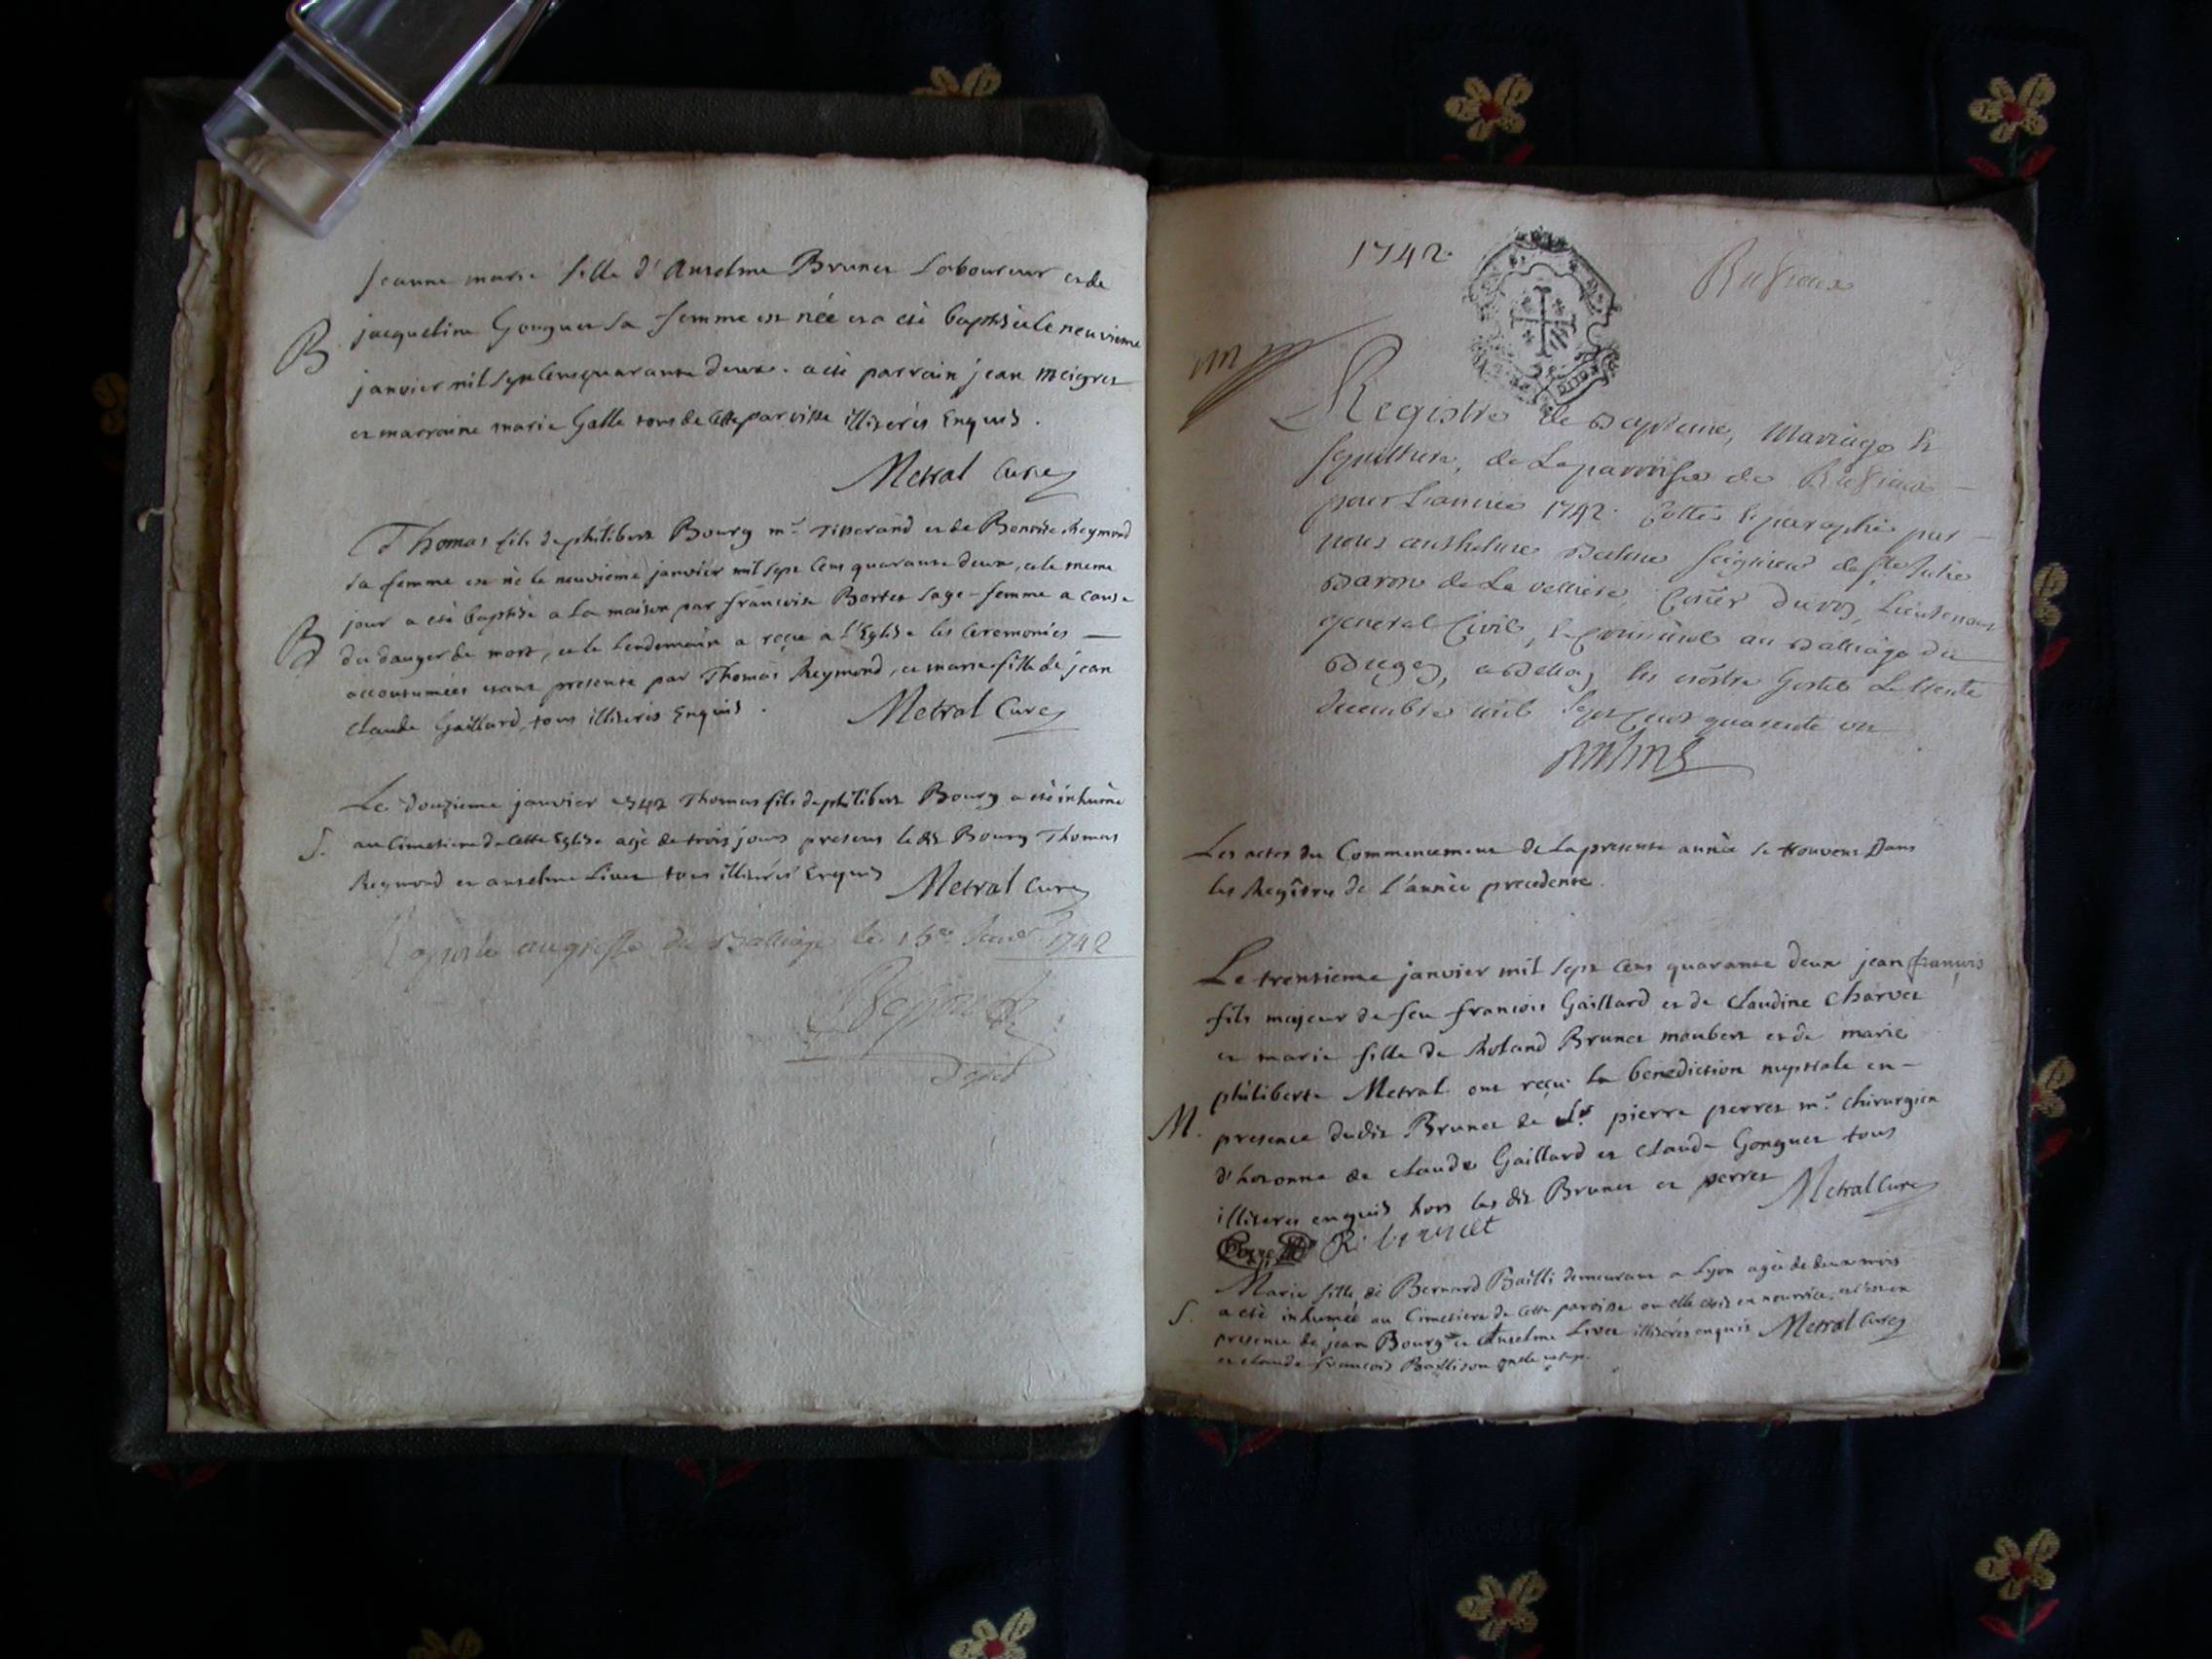 Jeanne marie fille d'Anselme Brunet Laboureur et de
B. jacqueline Gonguet sa femme est née et a eté baptisée le neuvieme
janvier mil sept cens quarante deux. a eté parrain jean Meigret
et marraine marie Galle tous de cette paroisse illiterés Enquis.
Metral Curé
Thomas fils de philibert Bourg m.e Tisserand et de Benoite Reymond
sa femme est né le neuvieme janvier mil sept cens quarante deux, et le meme
B jour a eté baptisé a la maison par francoise Bertet sage-femme a cause
du danger de mort, et le lendemain a reçu à l'Eglise les Ceremonies —
accoutumées etant presenté par Thomas Reymond, et marie fille de jean
claude Gaillard, tous illiterés Enquis.
Metral Curé
Le douzieme janvier 1742 Thomas fils de philibert Bourg a eté inhumé
S. au Cimetiere de cette Eglise agé de trois jours presens le dit Bourg Thomas
Reymond et anselme Livet tous illiterés Enquis
Metral Curé
aporté au greffe du Balliage le 15e Janer 1742
1742.
Rufieux
Registre de Bapteme, Mariage &
sepulture, de La paroisse de Rufieux —
pour L'année 1742. Cottée & paraphé par —
nous anthelme Balme seigneur de Ste Julie
Baron de La velliere, Coner du roy, Lieutenant
general Civil, & Criminel au Balliage du
Bugey, a Belley les notre hostel Le trente
decembre mil sept cent quarente un
Balme
Les actes du Commencement de La presente année se trouvent Dans
les Regîtres de l'année precedente.
Le trentieme janvier mil sept cens quarante deux jean françois
fils majeur de feu francois Gaillard et de claudine Charvet
et marie fille de Roland Brunet maubert et de marie
philiberte Metral ont reçu la benediction nuptiale en —
M. presence dudit Brunet de Sr. pierre perret m.e chirurgien
d'hotonne de claude Gaillard et claude Gonguet tous
illiterés enquis hors les dit Brunet et perret
Metral Curé
Perret R. brunet
Marie fille de Bernard Bailli demeurant a Lyon agée de deux mois
S. a eté inhumée au Cimetiere de cette paroisse ou elle etoit en nourrice,
presence de jean Bourg et Anselme Livet illiterés enquis Metral Curé
et claude francois